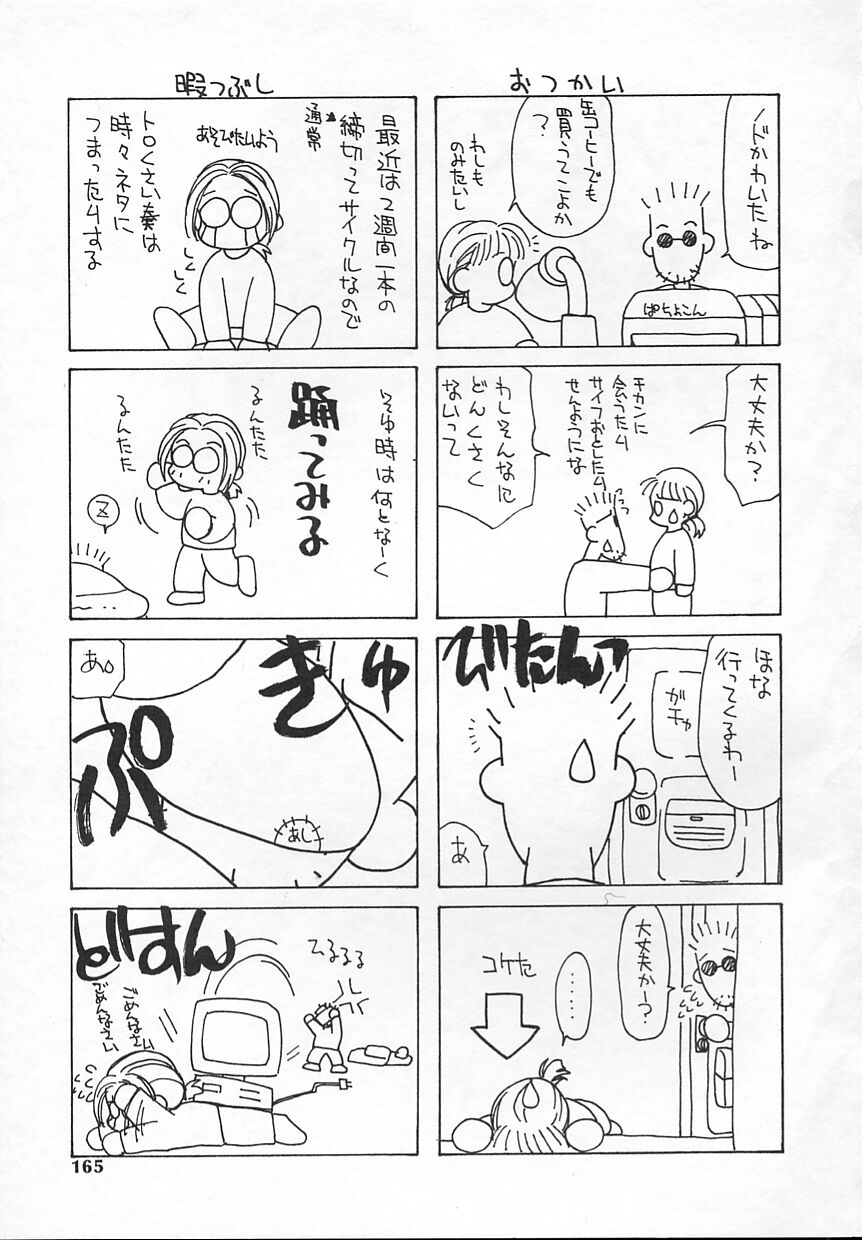 おつかい
ノドかわいたね
缶コーヒーでも
買うてこよか
?
わしも
のみたいし
ぱちょこん
大丈夫か?
チカンに
会うたり
サイフおとしたり
せんようにな
わしそんなに
どんくさく
ないって
ほな
行ってくるわー
ガチャ
びたんっ
あ
大丈夫かー?
……
コケた
暇つぶし
最近は2週間一本の
締切ってサイクルなので
通常
トロくさい奏は
時々ネタに
つまったりする
あそびたいよう
しくしく
そゆ時は何となーく
踊ってみる
るんたた
るんたた
Z
きゅ
ぷ
あ。
あし
どすん
ごめんなさい
ごめんなさい
165